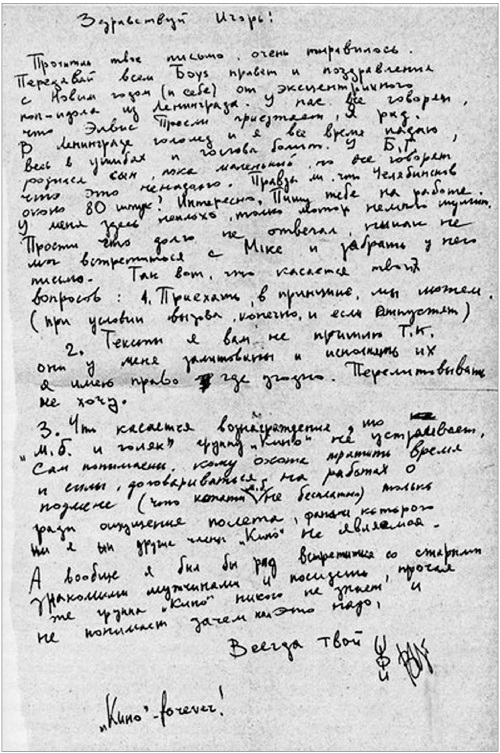 Здравствуй Игорь!
Прочитал твоё письмо, очень понравилось.
Передавай всем Boys привет и поздравления
с Новым годом (и себе) от эксцентричного
поп-идола из Ленинграда. У нас все говорят,
что Элвис Пресли приезжает, я рад.
В Ленинграде гололед и я все время падаю,
весь в ушибах и голова болит. У Б.Г.
родился сын пока маленький, но все говорят
что это ненадолго. Правда ли, что Челябинсков
около 80 штук? Интересно. Пишу тебе на работе.
У меня здесь неплохо, только мотор немного шумит.
Прости что долго не отвечал, никак не
мог встретиться с Mike и забрать у него
письмо. Так вот, что касается твоих
вопросов: 1. Приехать, в принципе, мы можем.
(при условии вызова, конечно, и если отпустят)
2. Тексты я вам не пришлю т.к.
они у меня залитованы и исполнять их
я имею право где угодно. Перелитовывать
не хочу.
3. Что касается вознаграждения, то
"М.Б. и голяк" группу "Кино" не устраивает,
Сам понимаешь, кому охота тратить время
и силы, договариваться на работах о
подмене (что кстати не бесплатно) только
ради ощущения полета, фаном которого
ни я ни другие члены "Кино" не являемся.
А вообще я был бы рад встретиться со старыми
знакомыми мужчинами и посидеть, прочая
же группа "Кино" никого не знает, и
не понимает зачем им это надо,
Всегда твой
"Кино"-forever!